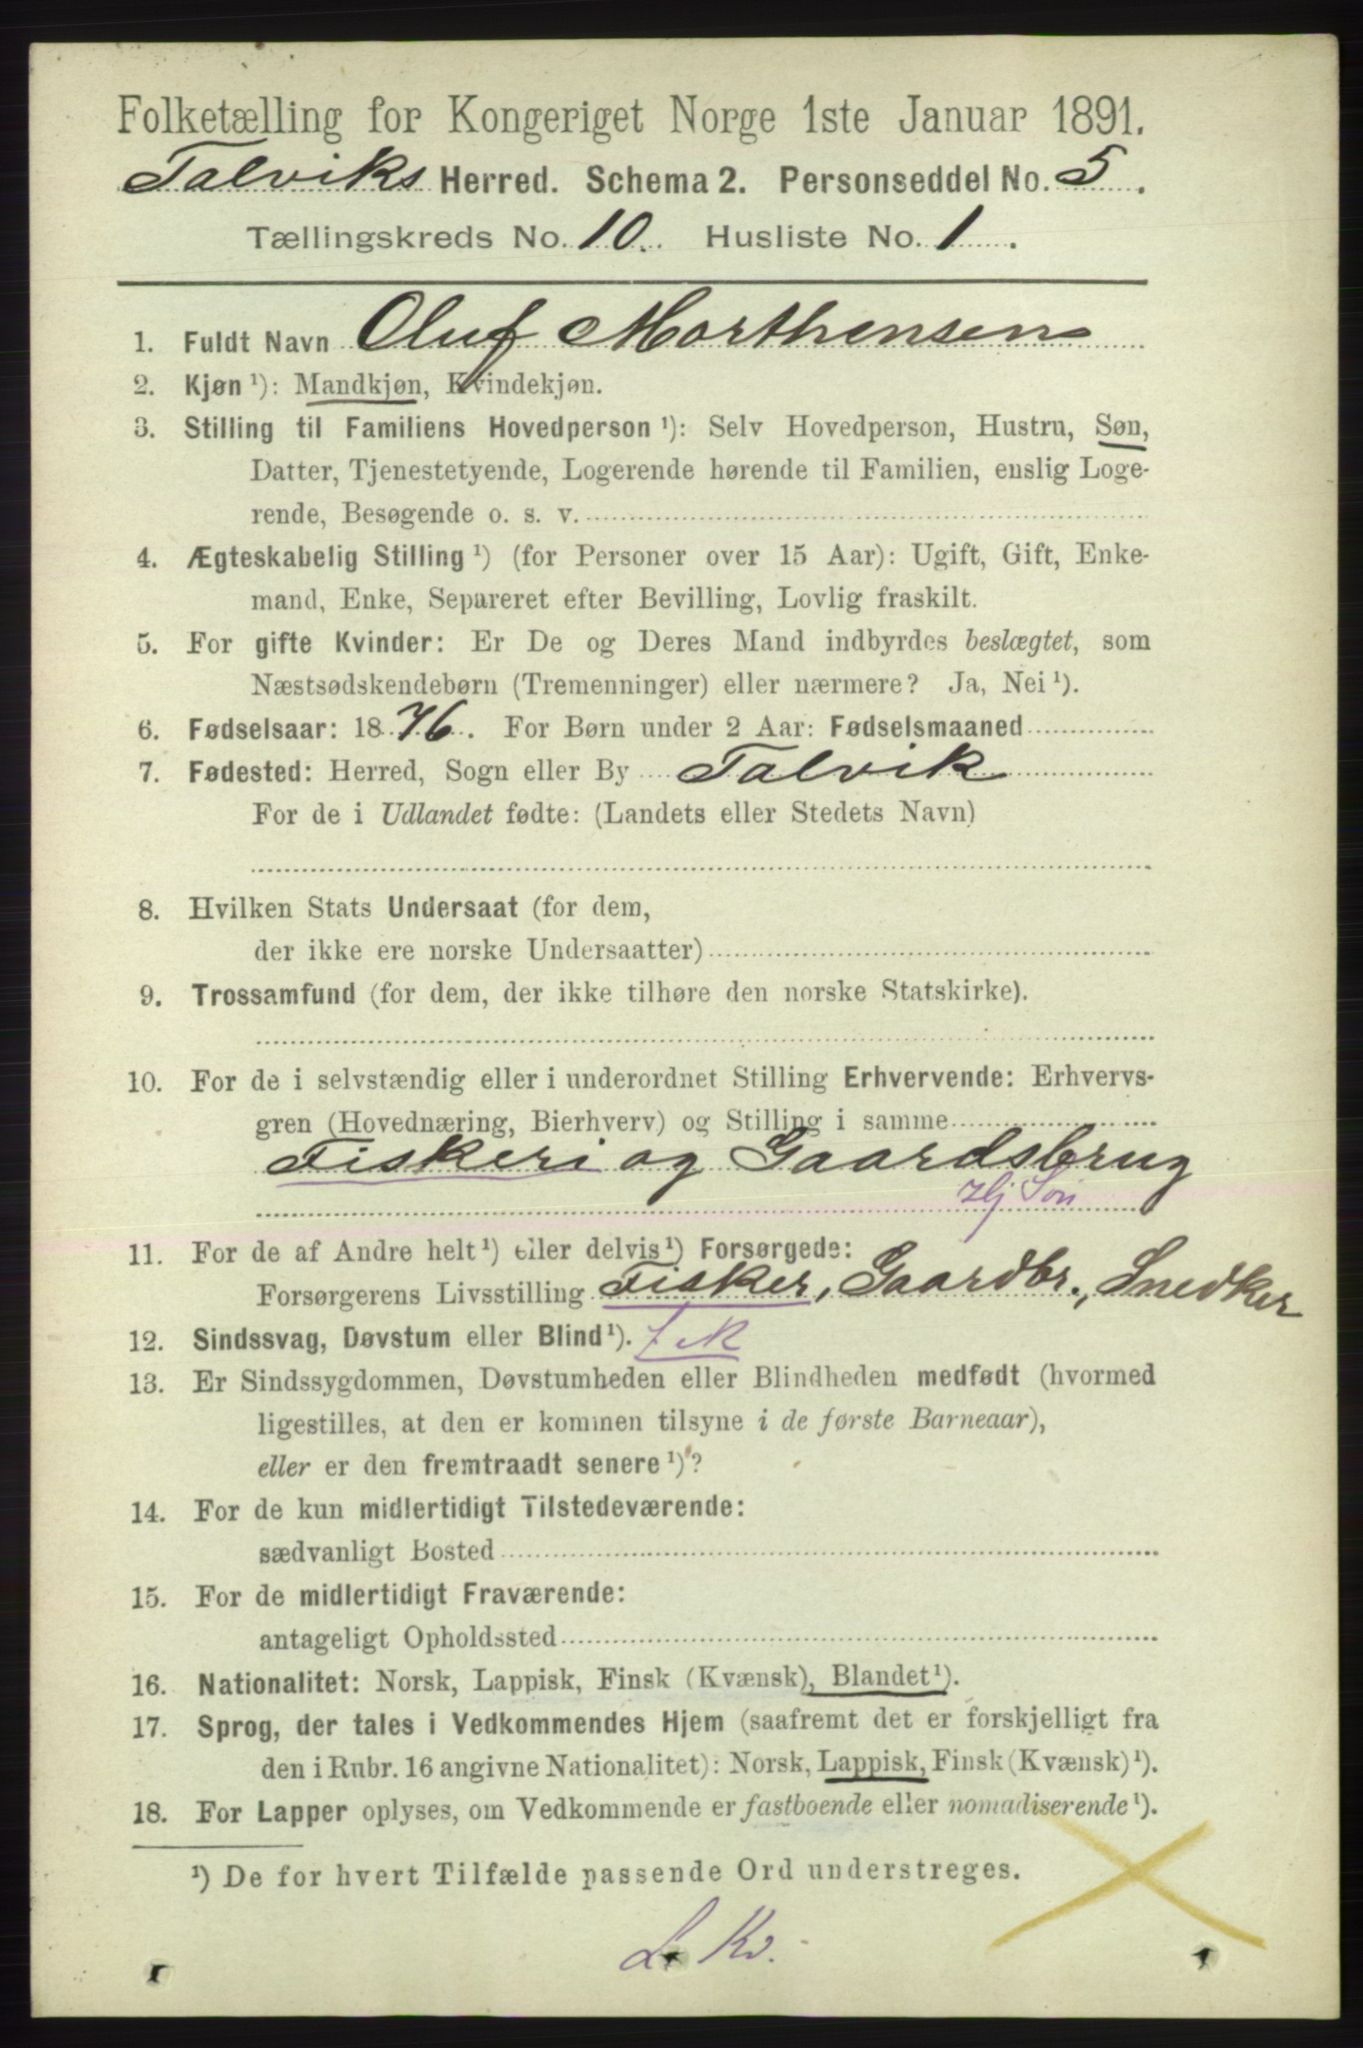 Folketælling for Kongeriget Norge 1ste Januar 1891.
Talviks Herred. Schema 2. Personseddel No. 5.
Tællingskreds No. 10. Husliste No. 1.
1. Fuldt Navn Oluf Morthensen
2. Kjøn ¹): Mandkjøn, Kvindekjøn.
3. Stilling til Familiens Hovedperson ¹): Selv Hovedperson, Hustru, Søn,
Datter, Tjenestetyende, Logerende hørende til Familien, enslig Loge-
rende, Besøgende o. s. v.
4. Ægteskabelig Stilling ¹) (for Personer over 15 Aar): Ugift, Gift, Enke-
mand, Enke, Separeret efter Bevilling, Lovlig fraskilt.
5. For gifte Kvinder: Er De og Deres Mand indbyrdes beslægtet, som
Næstsødskendebørn (Tremenninger) eller nærmere? Ja, Nei ¹).
6. Fødselsaar: 1876. For Børn under 2 Aar: Fødselsmaaned
7. Fødested: Herred, Sogn eller By Talvik
For de i Udlandet fødte: (Landets eller Stedets Navn)
8. Hvilken Stats Undersaat (for dem,
der ikke ere norske Undersaatter)
9. Trossamfund (for dem, der ikke tilhøre den norske Statskirke).
10. For de i selvstændig eller i underordnet Stilling Erhvervende: Erhvervs-
gren (Hovednæring, Bierhverv) og Stilling i samme
Fiskeri og Gaardsbrug
Hj Søn
11. For de af Andre helt ¹) eller delvis ¹) Forsørgede:
Forsørgerens Livsstilling Fisker, Gaardbr., Snedker
12. Sindssvag, Døvstum eller Blind ¹).
13. Er Sindssygdommen, Døvstumheden eller Blindheden medfødt (hvormed
ligestilles, at den er kommen tilsyne i de første Barneaar),
eller er den fremtraadt senere ¹)?
14. For de kun midlertidigt Tilstedeværende:
sædvanligt Bosted
15. For de midlertidigt Fraværende:
antageligt Opholdssted
16. Nationalitet: Norsk, Lappisk, Finsk (Kvænsk), Blandet ¹).
17. Sprog, der tales i Vedkommendes Hjem (saafremt det er forskjelligt fra
den i Rubr. 16 angivne Nationalitet): Norsk, Lappisk, Finsk (Kvænsk) ¹).
18. For Lapper oplyses, om Vedkommende er fastboende eller nomadiserende ¹).
¹) De for hvert Tilfælde passende Ord understreges.
L. Kv.